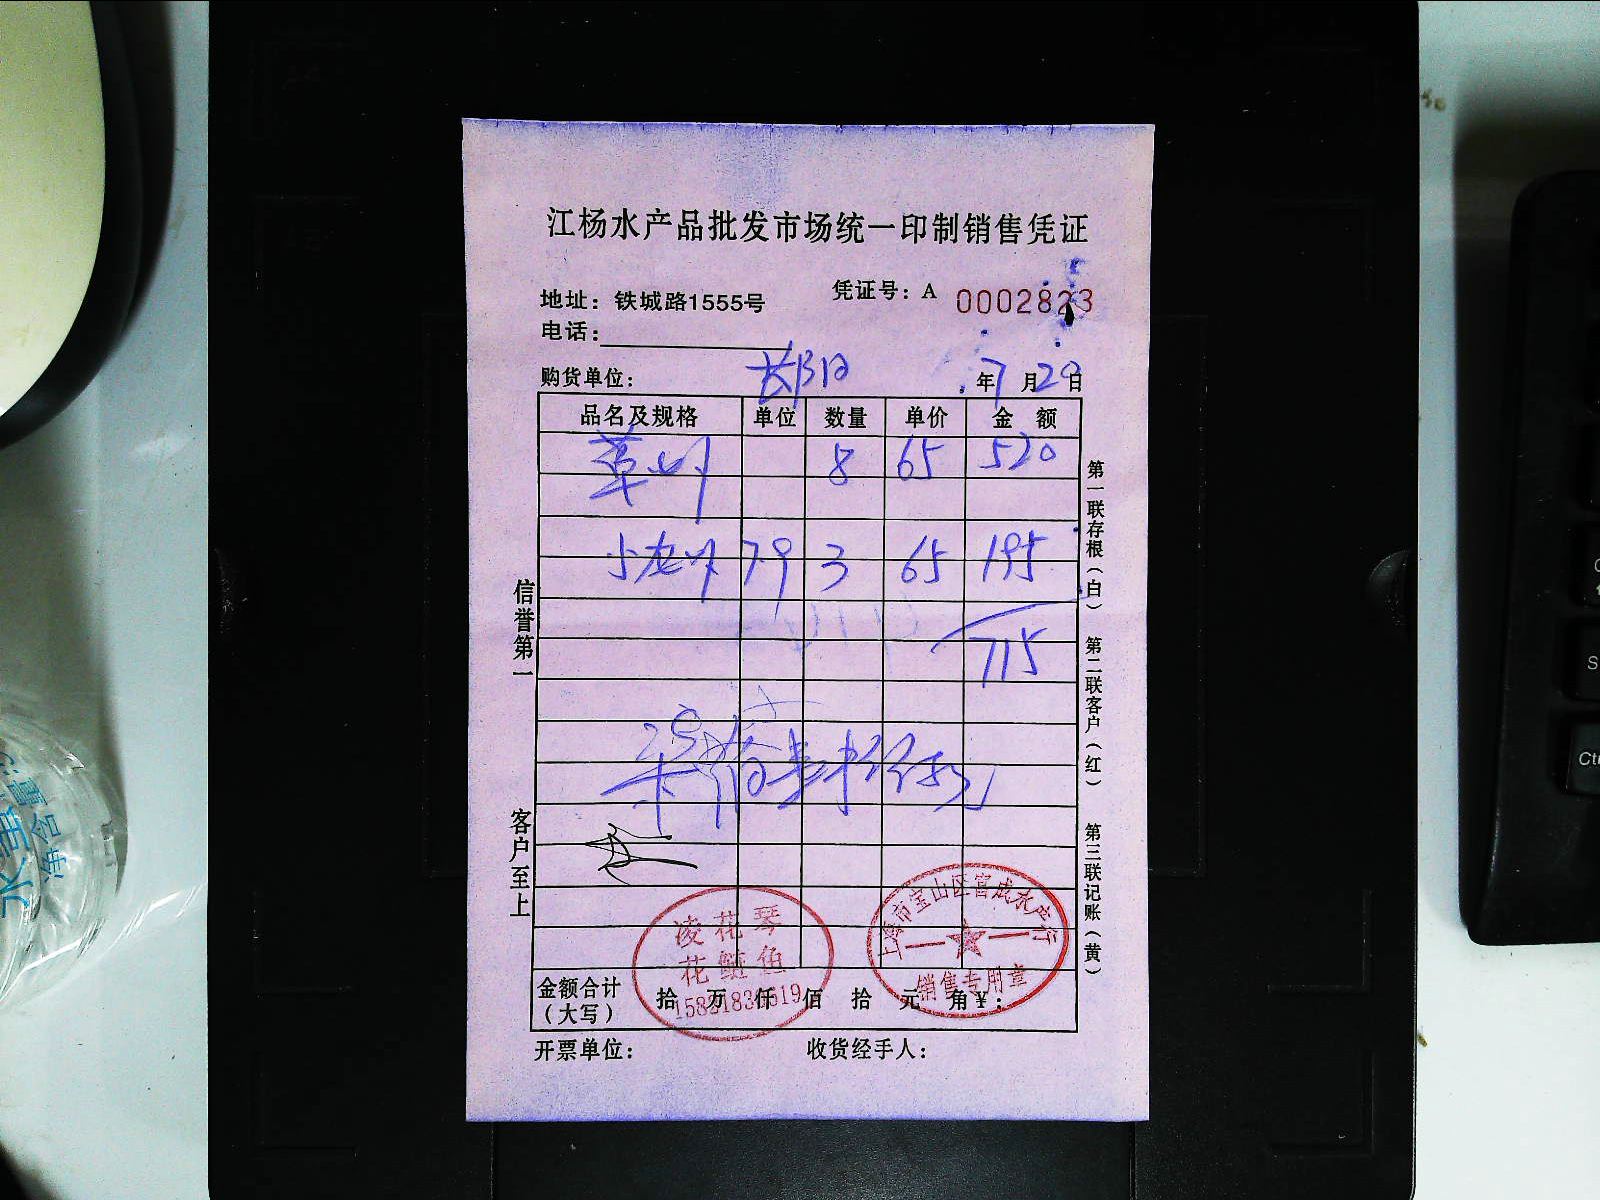 江杨水产品批发市场统一印制销售凭证
凭证号：A 0002823
地址：铁城路1555号
电话：
购货单位： 年7月20日
品名及规格 单位 数量 单价 金额
8 65 520
79 3 65 195
715
信誉第一
客户至上
第一联存根（白）
第二联客户（红）
第三联记账（黄）
凌花琴
花鲢鱼
上海市宝山区官成水产行
销售专用章
金额合计（大写） 拾 万 仟 佰 拾 元 角￥：
开票单位： 收货经手人：